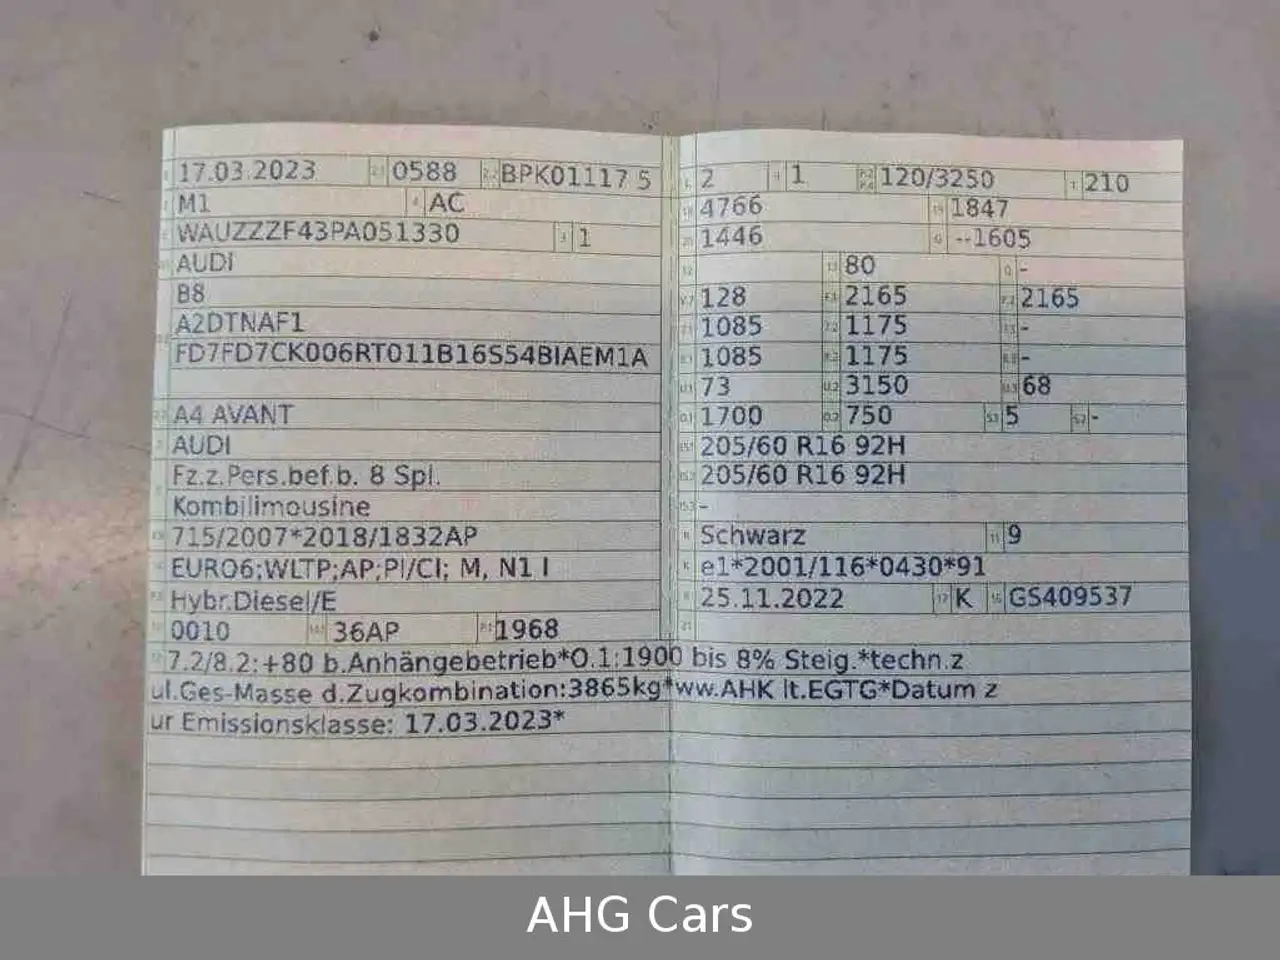 17.03.2023 0588 BPK01117 5
M1 AC
WAUZZZF43PA051330 1
AUDI
B8
A2DTNAF1
FD7FD7CK006RT011B16S54BIAEM1A
A4 AVANT
AUDI
Fz.z.Pers.bef.b. 8 Spl.
Kombilimousine
715/2007*2018/1832AP
EURO6;WLTP;AP;PI/CI; M, N1 I
Hybr.Diesel/E
0010 36AP 1968
2 1 120/3250 210
4766 1847
1446 --1605
80 -
128 2165 2165
1085 1175 -
1085 1175 -
73 3150 68
1700 750 5 -
205/60 R16 92H
205/60 R16 92H
-
Schwarz 9
e1*2001/116*0430*91
25.11.2022 K GS409537
7.2/8.2:+80 b.Anhängebetrieb*O.1:1900 bis 8% Steig.*techn.z
ul.Ges-Masse d.Zugkombination:3865kg*ww.AHK lt.EGTG*Datum z
ur Emissionsklasse: 17.03.2023*
AHG Cars